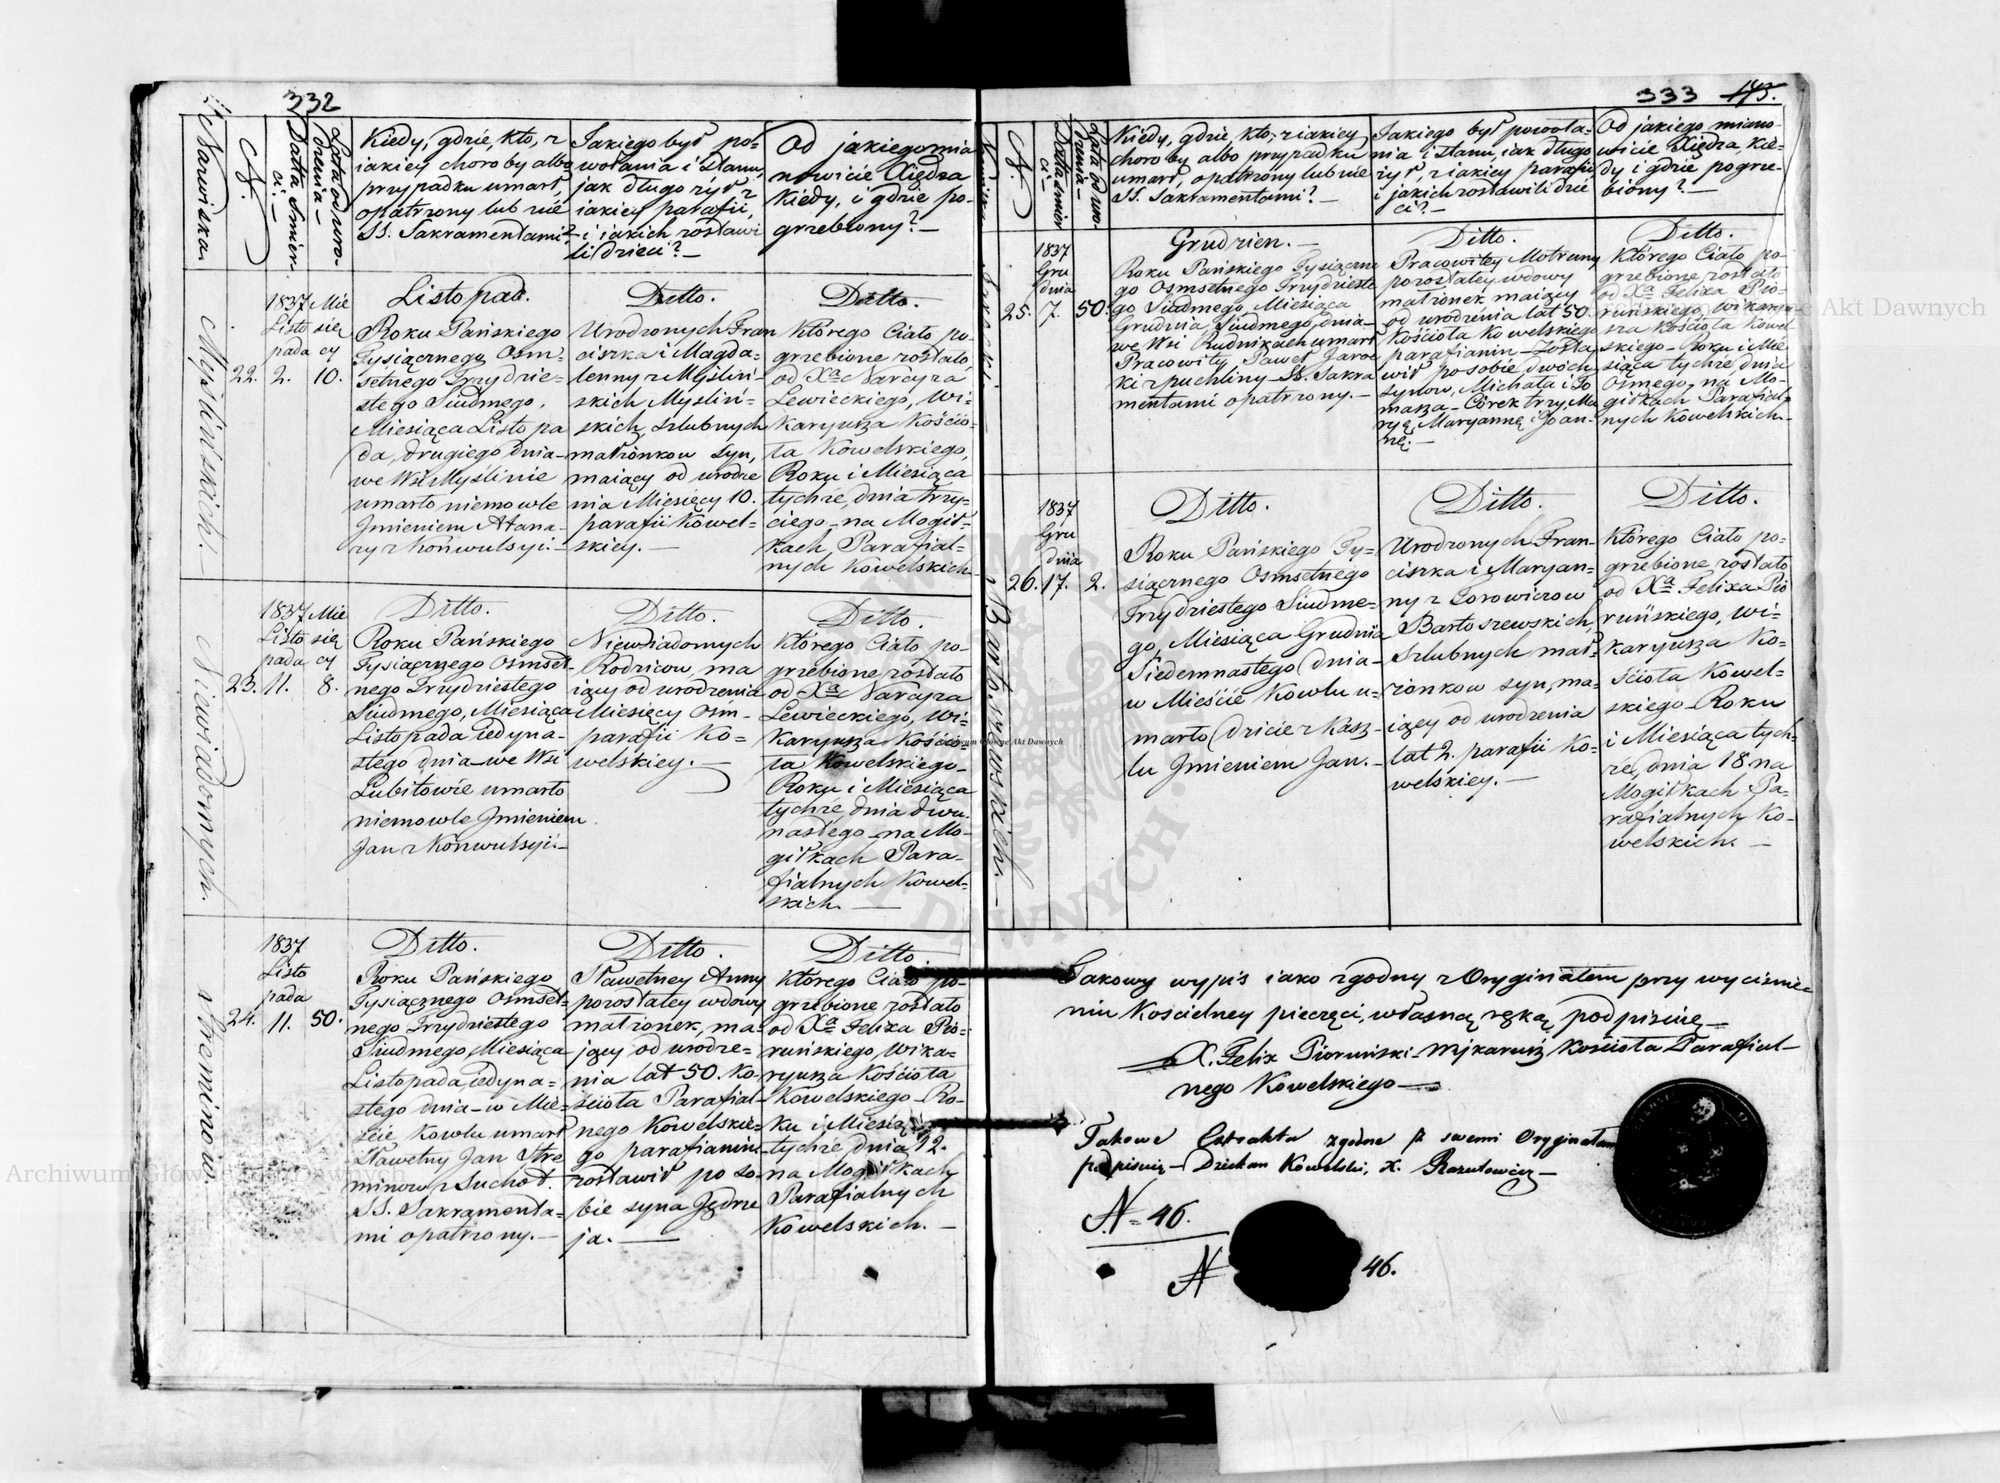 332
Nazwiska.
N.
Datta śmier-
ci.—
Lata od uro-
dzenia—
Kiedy, gdzie, kto, z
iakiey choroby albo
przypadku umarł,
opatrzony lub nie
SS. Sakramentami?
Jakiego był po-
wołania i stanu,
jak długo żył z
iakiey parafii,
i iakich zostawi
li dzieci?—
Od jakiego mia
nowicie Xiędza
Kiedy, i gdzie po-
grzebiony?—
Myślinskich.—
22.
1837
Listo
pada
2.
Mie
sięc
cy
10.
Listopad.
Roku Pańskiego
Tysiącznego Osm-
setnego Trzydzie-
stego Siudmego,
Miesiąca Listopa
da, drugiego dnia—
we Wsi Myślinie
umarło niemowle
Jmieniem Atana-
zy z Końwulsyi.—
Ditto.
Urodzonych Fran
ciszka i Magda-
lenny z Myśliń-
skich Myśliń-
skich, szlubnych
małżonkow syn,
maiący od urodze
nia Miesięcy 10.
parafii Kowel-
skiey.—
Ditto.
Którego Ciało po-
grzebione zostało,
od Xa Narcyza
Lewieckiego, Wi-
karyusza Kościo-
ła Kowelskiego,
Roku i Miesiąca
tychże, dnia trzy-
ciego—na Mogił-
kach Parafial-
nych Kowelskich
Niewiadomych.
23.
1837
Listo
pada
11.
Mie
sięc
cy
8.
Ditto.
Roku Pańskiego
Tysiącznego Osmset-
nego Trzydziestego
Siudmego, Miesiąca
Listopada iedyna-
stego dnia—we Wsi
Lubitowie umarło
niemowle Jmieniem
Jan z Konwulsyi.—
Ditto.
Niewiadomych
Rodzicow ma
iący od urodzenia
Miesięcy Osm-
parafii Ko-
welskiey.—
Ditto.
Którego Ciało po-
grzebione zostało
od Xa Narcyza
Lewieckiego, Wi-
karyusza Kościo-
ła Kowelskiego—
Roku i Miesiąca
tychże, dnia dwu-
nastego—na Mo-
giłkach Para-
fialnych Kowel-
skich.—
Streminow.—
24.
1837
Listo
pada
11.
50.
Ditto.
Roku Pańskiego
Tysiącznego Osmset-
nego Trzydziestego
Siudmego Miesiąca
Listopada iedyna-
stego dnia—w Mie-
ście Kowlu umarł
Sławetny Jan Stre
minow z Suchot.
SS. Sakramenta-
mi opatrzony.—
Ditto.
Sławetney Anny
pozostałey wdowy
małżonek, ma-
jący od urodze-
nia lat 50. Ko-
ścioła Parafial-
nego Kowelskie-
go parafianin—
zostawił po so-
bie syna Jędrze
ja.—
Ditto.
Którego Ciało po-
grzebione zostało
od Xa Felixa Pio-
ruńskiego Wika-
ryusza Kościoła
Kowelskiego—Ro-
ku i Miesiąca
tychże dnia 12.
na Mogiłkach
Parafialnych
Kowelskich.—
333
N.
Datta śmier
ci.—
Lata od uro-
dzenia—
Kiedy, gdzie, kto, z iakiey
choroby albo przypadku
umarł, opatrzony lub nie
SS. Sakramentami?—
Jakiego był powoła-
nia i stanu, iak długo
żył, z iakiey parafii,
i jakich zostawili dzie
ci?—
Od jakiego miano-
wicie Xiędza Kie-
dy i gdzie pogrze-
biony?—
25.
1837
Gru
dnia
7.
50.
Grudzien.—
Roku Pańskiego Tysiączne
go Osmsetnego Trzydzieste
go Siudmego, Miesiąca
Grudnia, Siudmego, dnia—
we Wsi Rudnikach umarł
Pracowity Paweł Jaroc
ki z puchliny—SS. Sakra
mentami opatrzony.—
Ditto.
Pracowitey Motruny
pozostałey wdowy
małżonek maiący
od urodzenia lat 50.
Kościoła Kowelskiego
parafianin—Zosta
wił po sobie dwoch
synow, Michała i To
masza—Córek trzy, Ma
ryą, Maryannę i Joan-
nę.—
Ditto.
Którego Ciało po-
grzebione zostało
od Xa Felixa Pio-
ruńskiego, Wikaryu
sza Kościoła Kowel
skiego—Roku i Mie
siąca tychże dnia
Osmego, na Mo-
giłkach Parafial-
nych Kowelskich—
Bartoszewskich.—
26.
1837
Gru
dnia
17.
2.
Ditto.
Roku Pańskiego Ty-
siącznego Osmsetnego
Trzydziestego Siudme-
go, Miesiąca Grudnia
Siedemnastego dnia—
w Mieście Kowlu u-
marło dzicie z Kasz-
lu Jmieniem Jan.—
Ditto.
Urodzonych Fran-
ciszka i Maryan-
ny z Borowiczow
Bartoszewskich,
Szlubnych mał-
żonkow syn, ma-
iący od urodzenia
lat 2. parafii Ko-
welskiey.—
Ditto.
Którego Ciało po-
grzebione zostało
od Xa Felixa Pio
ruńskiego, Wi-
karyusza Ko-
ścioła Kowel-
skiego—Roku
i Miesiąca tych-
że, dnia 18 na
Mogiłkach Pa-
rafialnych Ko-
welskich.—
Takowy wypis iako zgodny z Oryginałem przy wyciśnie-
niu Kościelney pieczęci, własną ręką podpisuię—
X. Felix Pioruński Wikaryusz Kościoła Parafial-
nego Kowelskiego—
Takowe Extrakta zgodne z swemi Oryginałami
podpisuię—Dziekan Kowelski, X. Rozutowicz—
N-46.
N 46.
Archiwum Główne Akt Dawnych